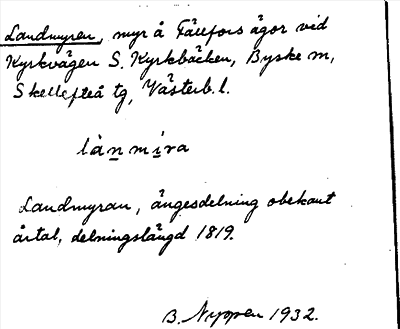 Landmyren, myr å Fällfors ägor vid
Kyrkvägen S. Kyrkbäcken, Byske m,
Skellefteå tg, Västerb. l.
länmira
Landmyran, ängesdelning obekant
årtal, delningslängd 1819.
B. Nyppen 1932.